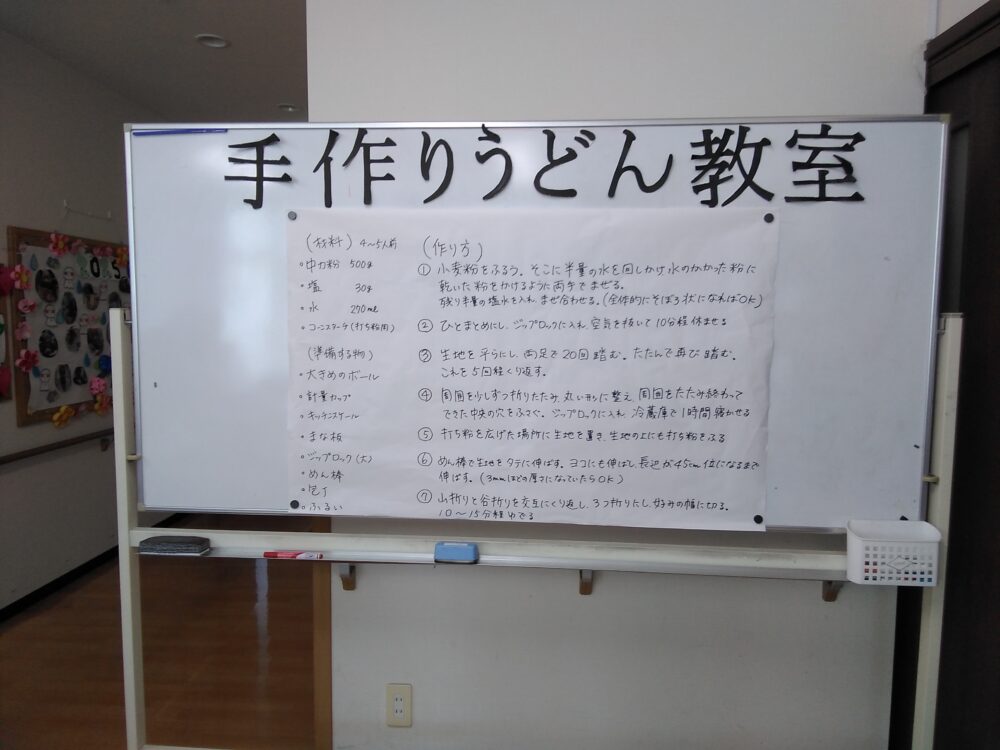 手作りうどん教室
(材料) 4〜5人前
・中力粉 500g
・塩 30g
・水 290ml
・コーンスターチ(打ち粉用)
(準備する物)
・大きめのボール
・計量カップ
・キッチンスケール
・まな板
・ジップロック(大)
・めん棒
・包丁
・ふるい
(作り方)
① 小麦粉をふるう。そこに半量の水を回しかけ水のかかった粉に
乾いた粉をかけるように両手でまぜる。
残り半量の塩水を入れ、まぜ合わせる。(全体的にそぼろ状になればOK)
② ひとまとめにし、ジップロックに入れ、空気を抜いて10分程休ませる
③ 生地を平らにし、両足で20回踏む。たたんで再び踏む。
これを5回程くり返す。
④ 周囲を少しずつ折りたたみ、丸い形に整え、周囲をたたみ終わって
できた中央の穴をふさぐ。ジップロックに入れ、冷蔵庫で1時間寝かせる
⑤ 打ち粉を広げた場所に生地を置き、生地の上にも打ち粉をふる
⑥ めん棒で生地をタテに伸ばす。ヨコにも伸ばし、長辺が45cm位になるまで
伸ばす。(3mmほどの厚さになっていたらOK)
⑦ 山折りと谷折りを交互にくり返し、3つ折りにし、好みの幅に切る。
10〜15分程ゆでる